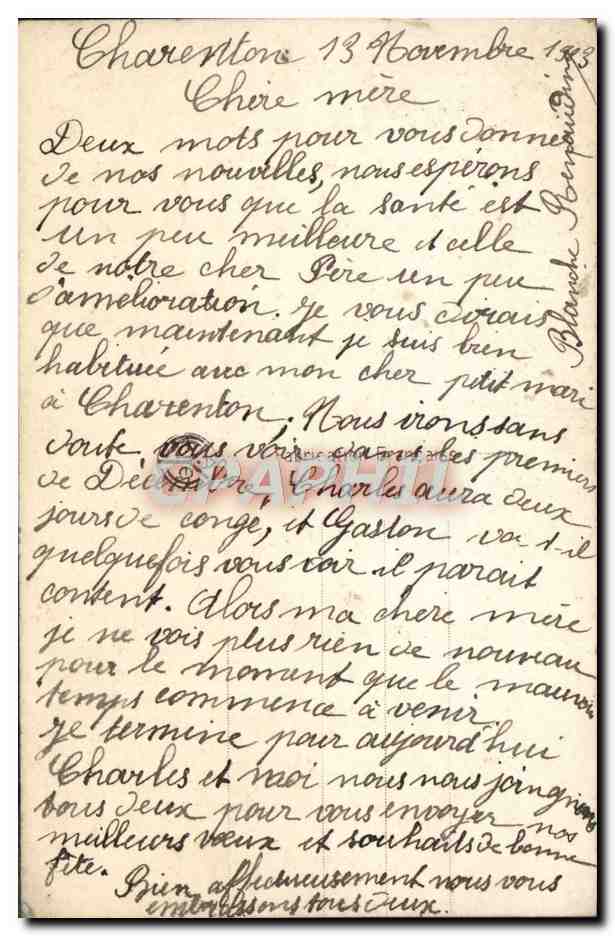 Charenton 13 Novembre 1913
Chère mère
Deux mots pour vous donner
de nos nouvelles, nous espérons
pour vous que la santé est
un peu meilleure et celle
de notre cher Père un peu
d'amélioration. Je vous dirais
que maintenant je suis bien
habituée avec mon cher petit mari
à Charenton, Nous irons sans
doute vous voir dans les premiers
de Décembre, Charles aura deux
jours de congé, et Gaston va-t-il
quelquefois vous voir il parait
content. Alors ma chère mère
je ne vois plus rien de nouveau
pour le moment que le mauvais
temps commence à venir.
Je termine pour aujourd'hui
Charles et moi nous nous joingnons
tous deux pour vous envoyer nos
meilleurs vœux et souhaits de bonne
fête.
Bien affectueusement nous vous
embrassons tous deux.
Blanche Renaudin
Fabrication Française
CPAPHIL